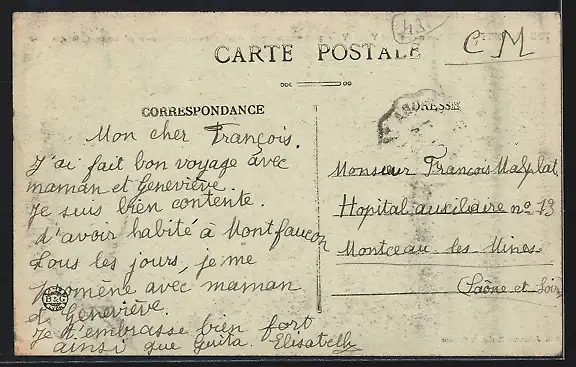 48
C M
CARTE POSTALE
CORRESPONDANCE
ADRESSE
Mon cher François.
J'ai fait bon voyage avec
maman et Geneviève.
Je suis bien contente.
d'avoir habité à Montfaucon
Tous les jours, je me
promène avec maman
et Geneviève.
B&G
Je t'embrasse bien fort
ainsi que Guita. Elisabeth
Monsieur François Malplat.
Hopital auxiliaire no 13
Montceau les Mines.
Saône et Loire